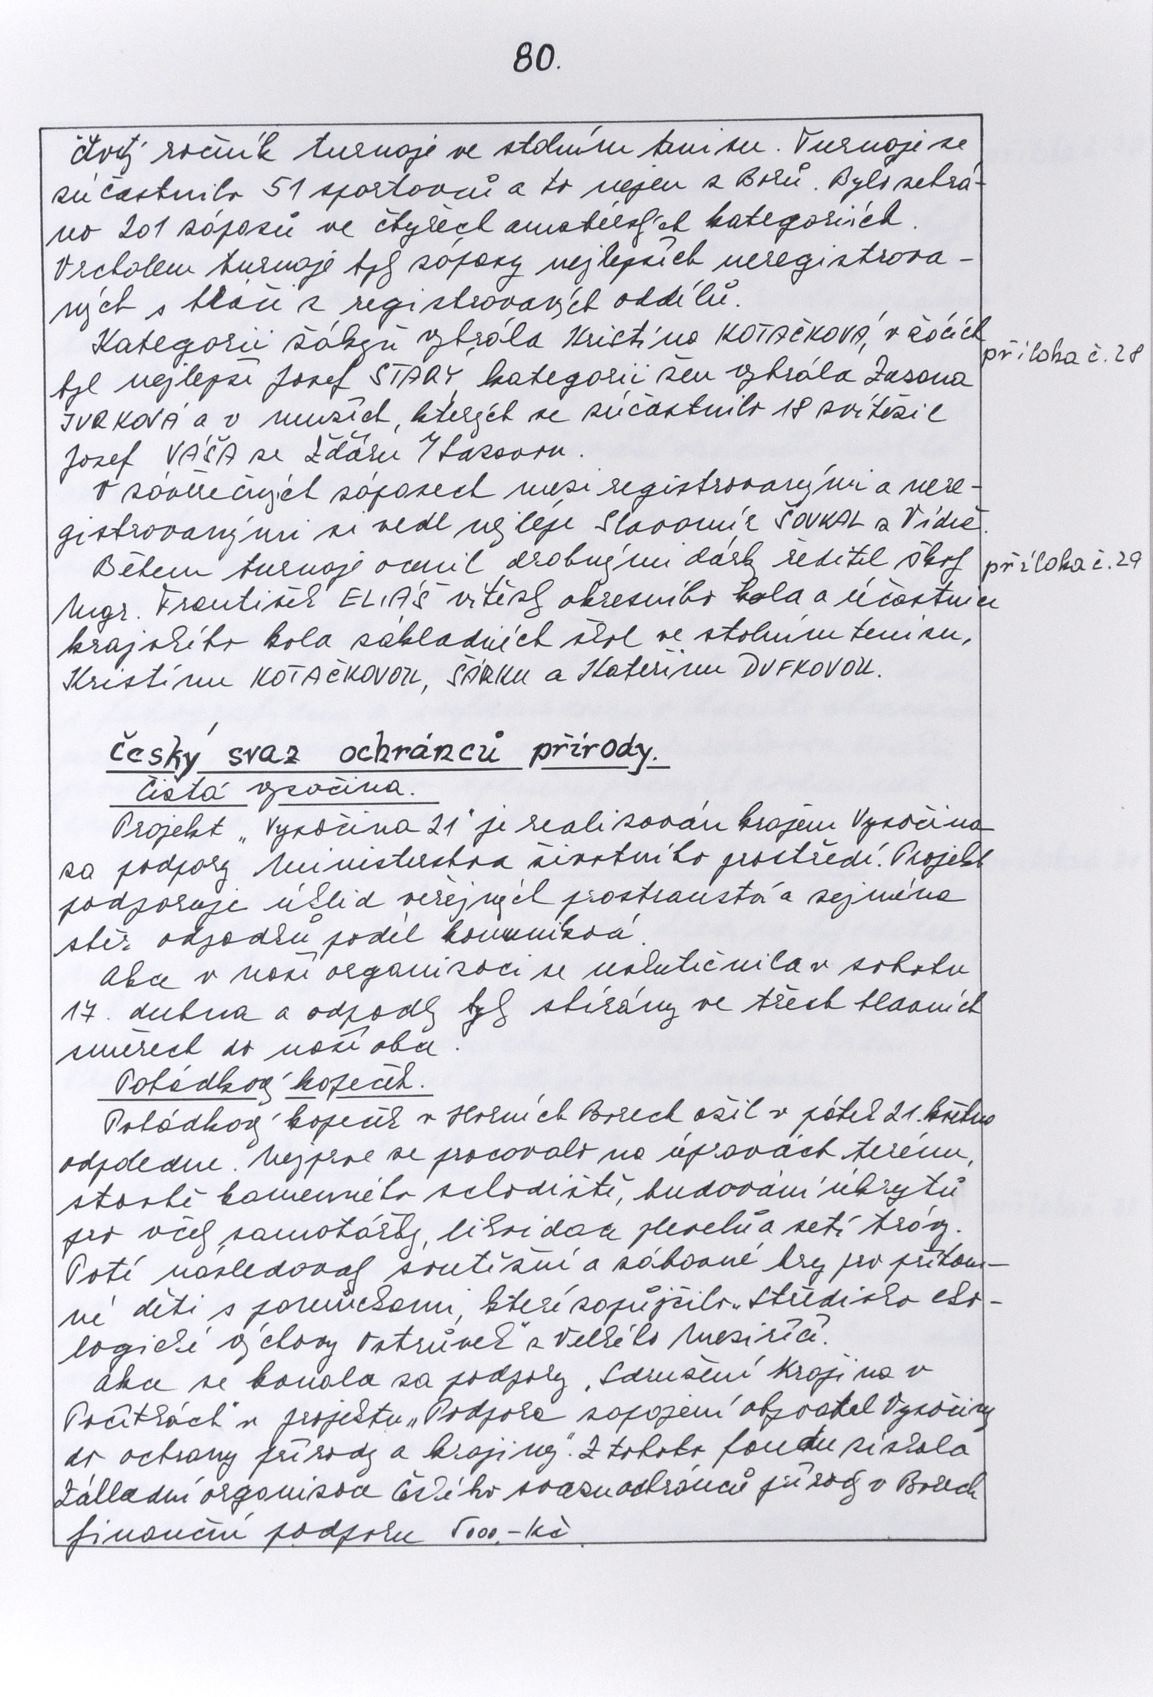 80.
čtvrtý ročník turnaje ve stolním tenisu. Turnaje se
zúčastnilo 51 sportovců a to nejen z Borů. Bylo sehrá-
no 201 zápasů ve čtyřech amatérských kategoriích.
Vrcholem turnaje byly zápasy nejlepších neregistrova-
ných s hráči z registrovaných oddílů.
Kategorii žákyň vyhrála Kristina KOTAČKOVÁ, v žácích
příloha č. 28
byl nejlepší Josef STARÝ, kategorii žen vyhrála Zuzana
JURKOVÁ a v mužích, kterých se zúčastnilo 18 zvítězil
Josef VÁŠA ze Žďáru n/Sázavou.
V závěrečných zápasech mezi registrovanými a nere-
gistrovanými si vedl nejlépe Slavomír ŠOUKAL z Vídně.
Během turnaje ocenil drobnými dárky ředitel školy
příloha č. 29
Mgr. František ELIÁŠ vítězky okresního kola a účastnice
krajského kola základních škol ve stolním tenisu,
Kristínu KOTAČKOVOU, ŠÁRKU a Kateřinu DUFKOVOU.
český svaz ochránců přírody.
Čistá vysočina.
Projekt „Vysočina 21" je realizován krajem Vysočina
za podpory Ministerstva životního prostředí. Projekt
podporuje úklid veřejných prostranství a zejména
sběr odpadků podél komunikací.
Akce v naší organizaci se uskutečnila v sobotu
17. dubna a odpady byly sbírány ve třech hlavních
směrech do naší obce.
Pohádkový kopeček.
Pohádkový kopeček v Horních Borech ožil v pátek 21. května
odpoledne. Nejprve se pracovalo na úpravách terénu,
stavbě kamenného schodiště, budování úkrytů
pro včely samotářky, likvidaci plevelů a setí trávy.
Poté následovaly soutěžní a zábavné hry pro přítom-
né děti s pomůckami, které zapůjčilo „Středisko eko-
logické výchovy Ostrůvek" z Velkého Meziříčí.
Akce se konala za podpory „Sdružení Krajina v
Počítkách" v projektu „Podpora zapojení obyvatel Vysočiny
do ochrany přírody a krajiny". Z tohoto fondu získala
Základní organizace Českého svazu ochránců přírody v Borech
finanční podporu 5000,-Kč